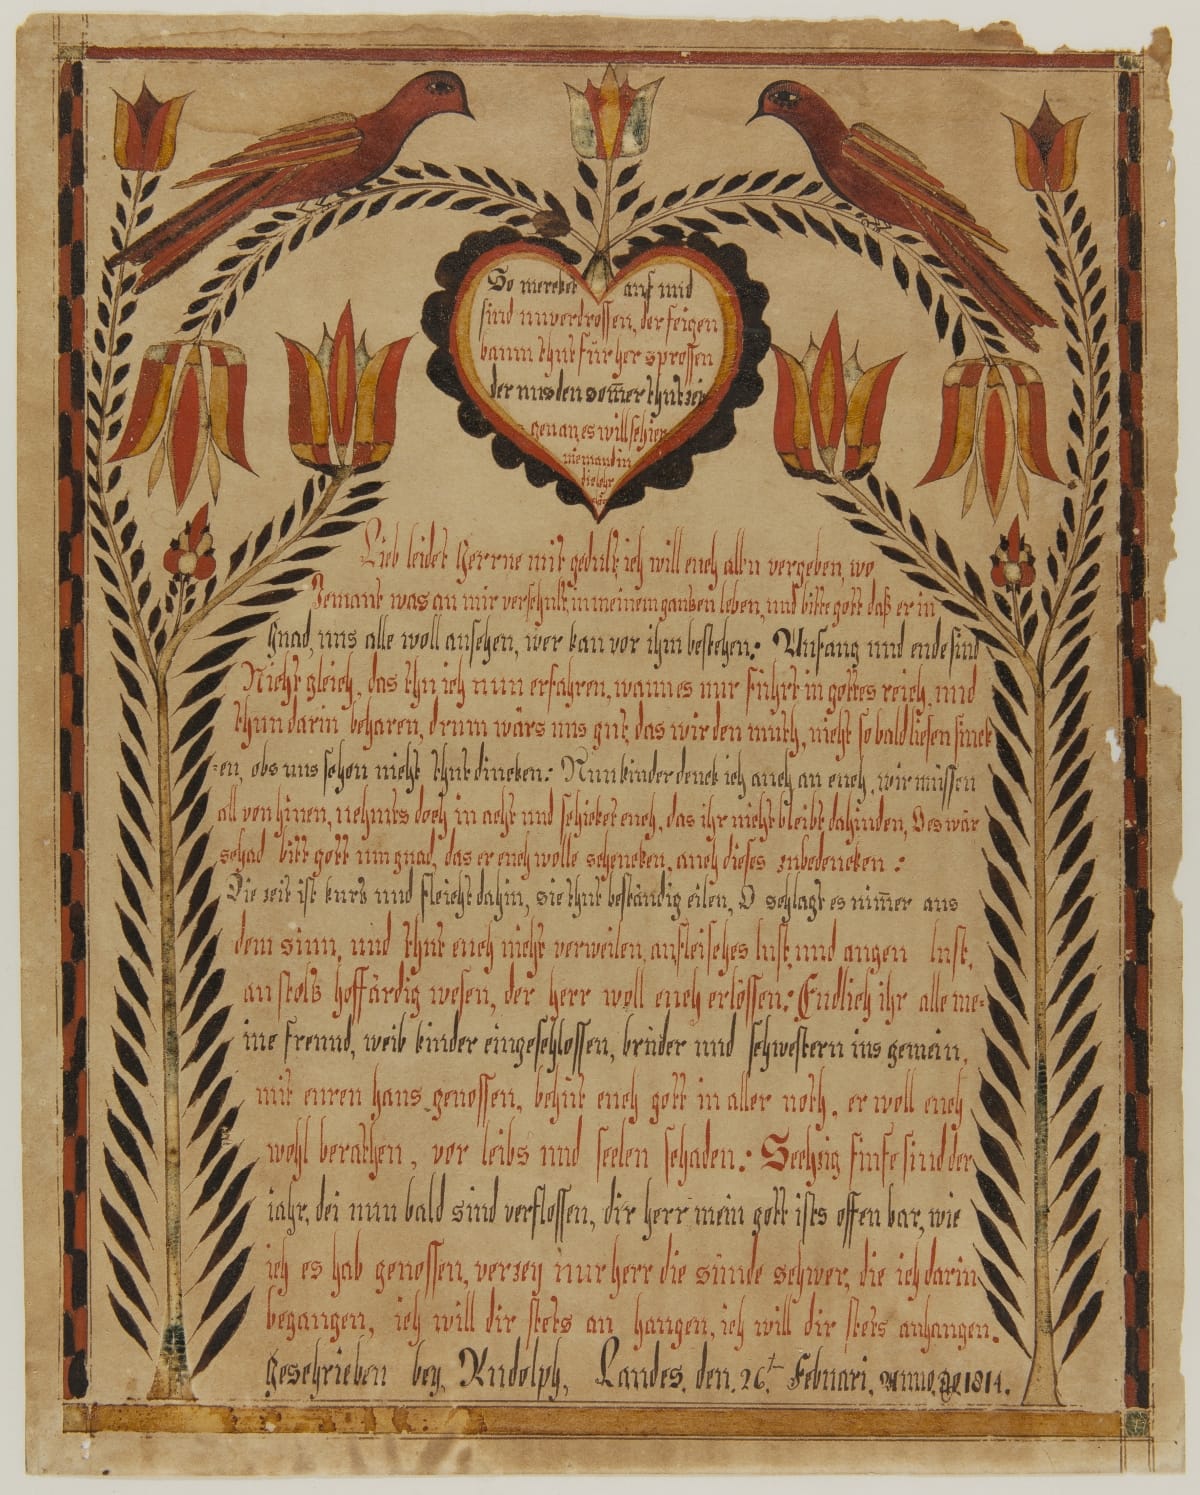 So mercket auf und
sind unverdrossen, der feigen
baum thut für her sprossen
der uns den som̅er thut zei
genan, es will schier
niemand in
die lehr
Lieb leidet Herrne mit gedult, ich will euch alln vergeben, wo
Jemant was an mir verschult, in meinem gantzen leben, und bitte gott daß er in
gnad, uns alle woll ansehen, wer kan vor ihm bestehen: Anfang und ende sind
Nicht gleich, das thu ich nun erfahren, wann es nur führt in gottes reich, und
thun darin beharen, drum wärs uns gut, das wir den muth, nicht so bald liesen sinck
=en, obs uns schon nicht thut duncken: Nun kinder denck ich auch an euch, wir müssen
all von hinen, nehmts doch in acht und schicket euch, das ihr nicht bleibt dahinden, Des wär
schad bitt gott um gnad, das er euch wolle schencken, auch dieses zubedencken:
Die zeit ist kurtz und fleicht dahin, sie thut beständig eilen, O schlagt es nim̅er aus
dem sinn, und thut euch nicht verweilen, an fleisches lust, und augen lust,
an stoltz hoffärdig wesen, der herr woll euch erlössen: Endlich ihr alle me=
ine freund, weib kinder eingeschlossen, brüder und schwestern ins gemein,
mit euren haus genossen, behüt euch gott in aller noth, er woll euch
wohl berathen, vor leibs und seelen schaden: Sechzig fünfe sind der
jahr, dei nun bald sind verflossen, dir herr mein gott ists offenbar, wie
ich es hab genossen, verzey nur herr die sünde schwer, die ich darin
begangen, ich will dir stets an hangen, ich will dir stets anhangen.
Geschrieben bey, Rudolph, Landes, den, 26t Februari, Anno, 1814.